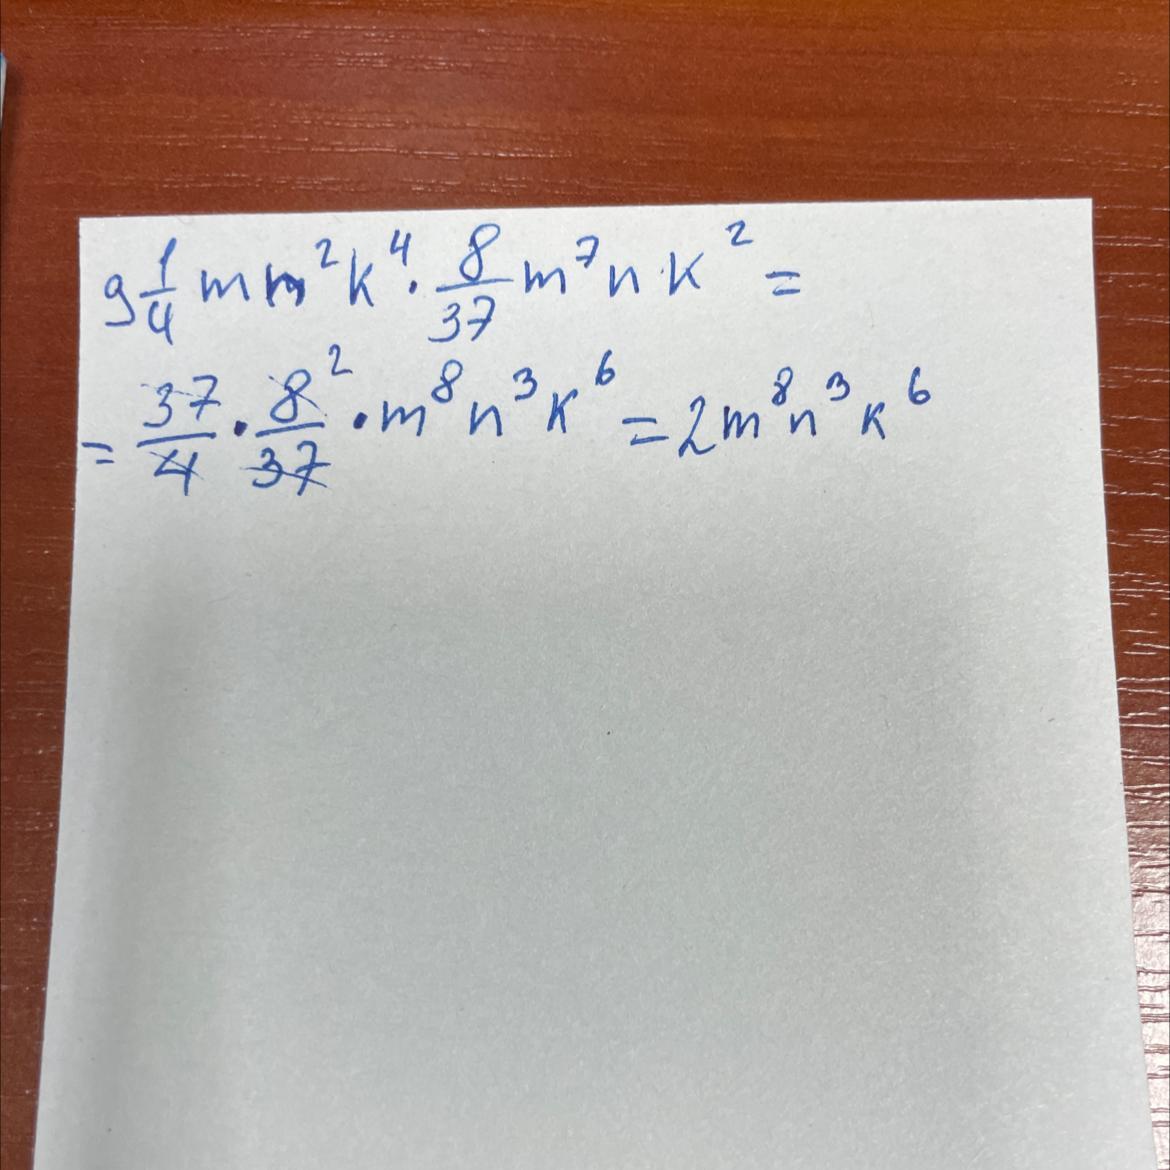 9 1/4 m n² k⁴ · 8/37 m⁷ n k² =
= 37/4 · 8²/37 · m⁸ n³ k⁶ = 2m⁸n³k⁶